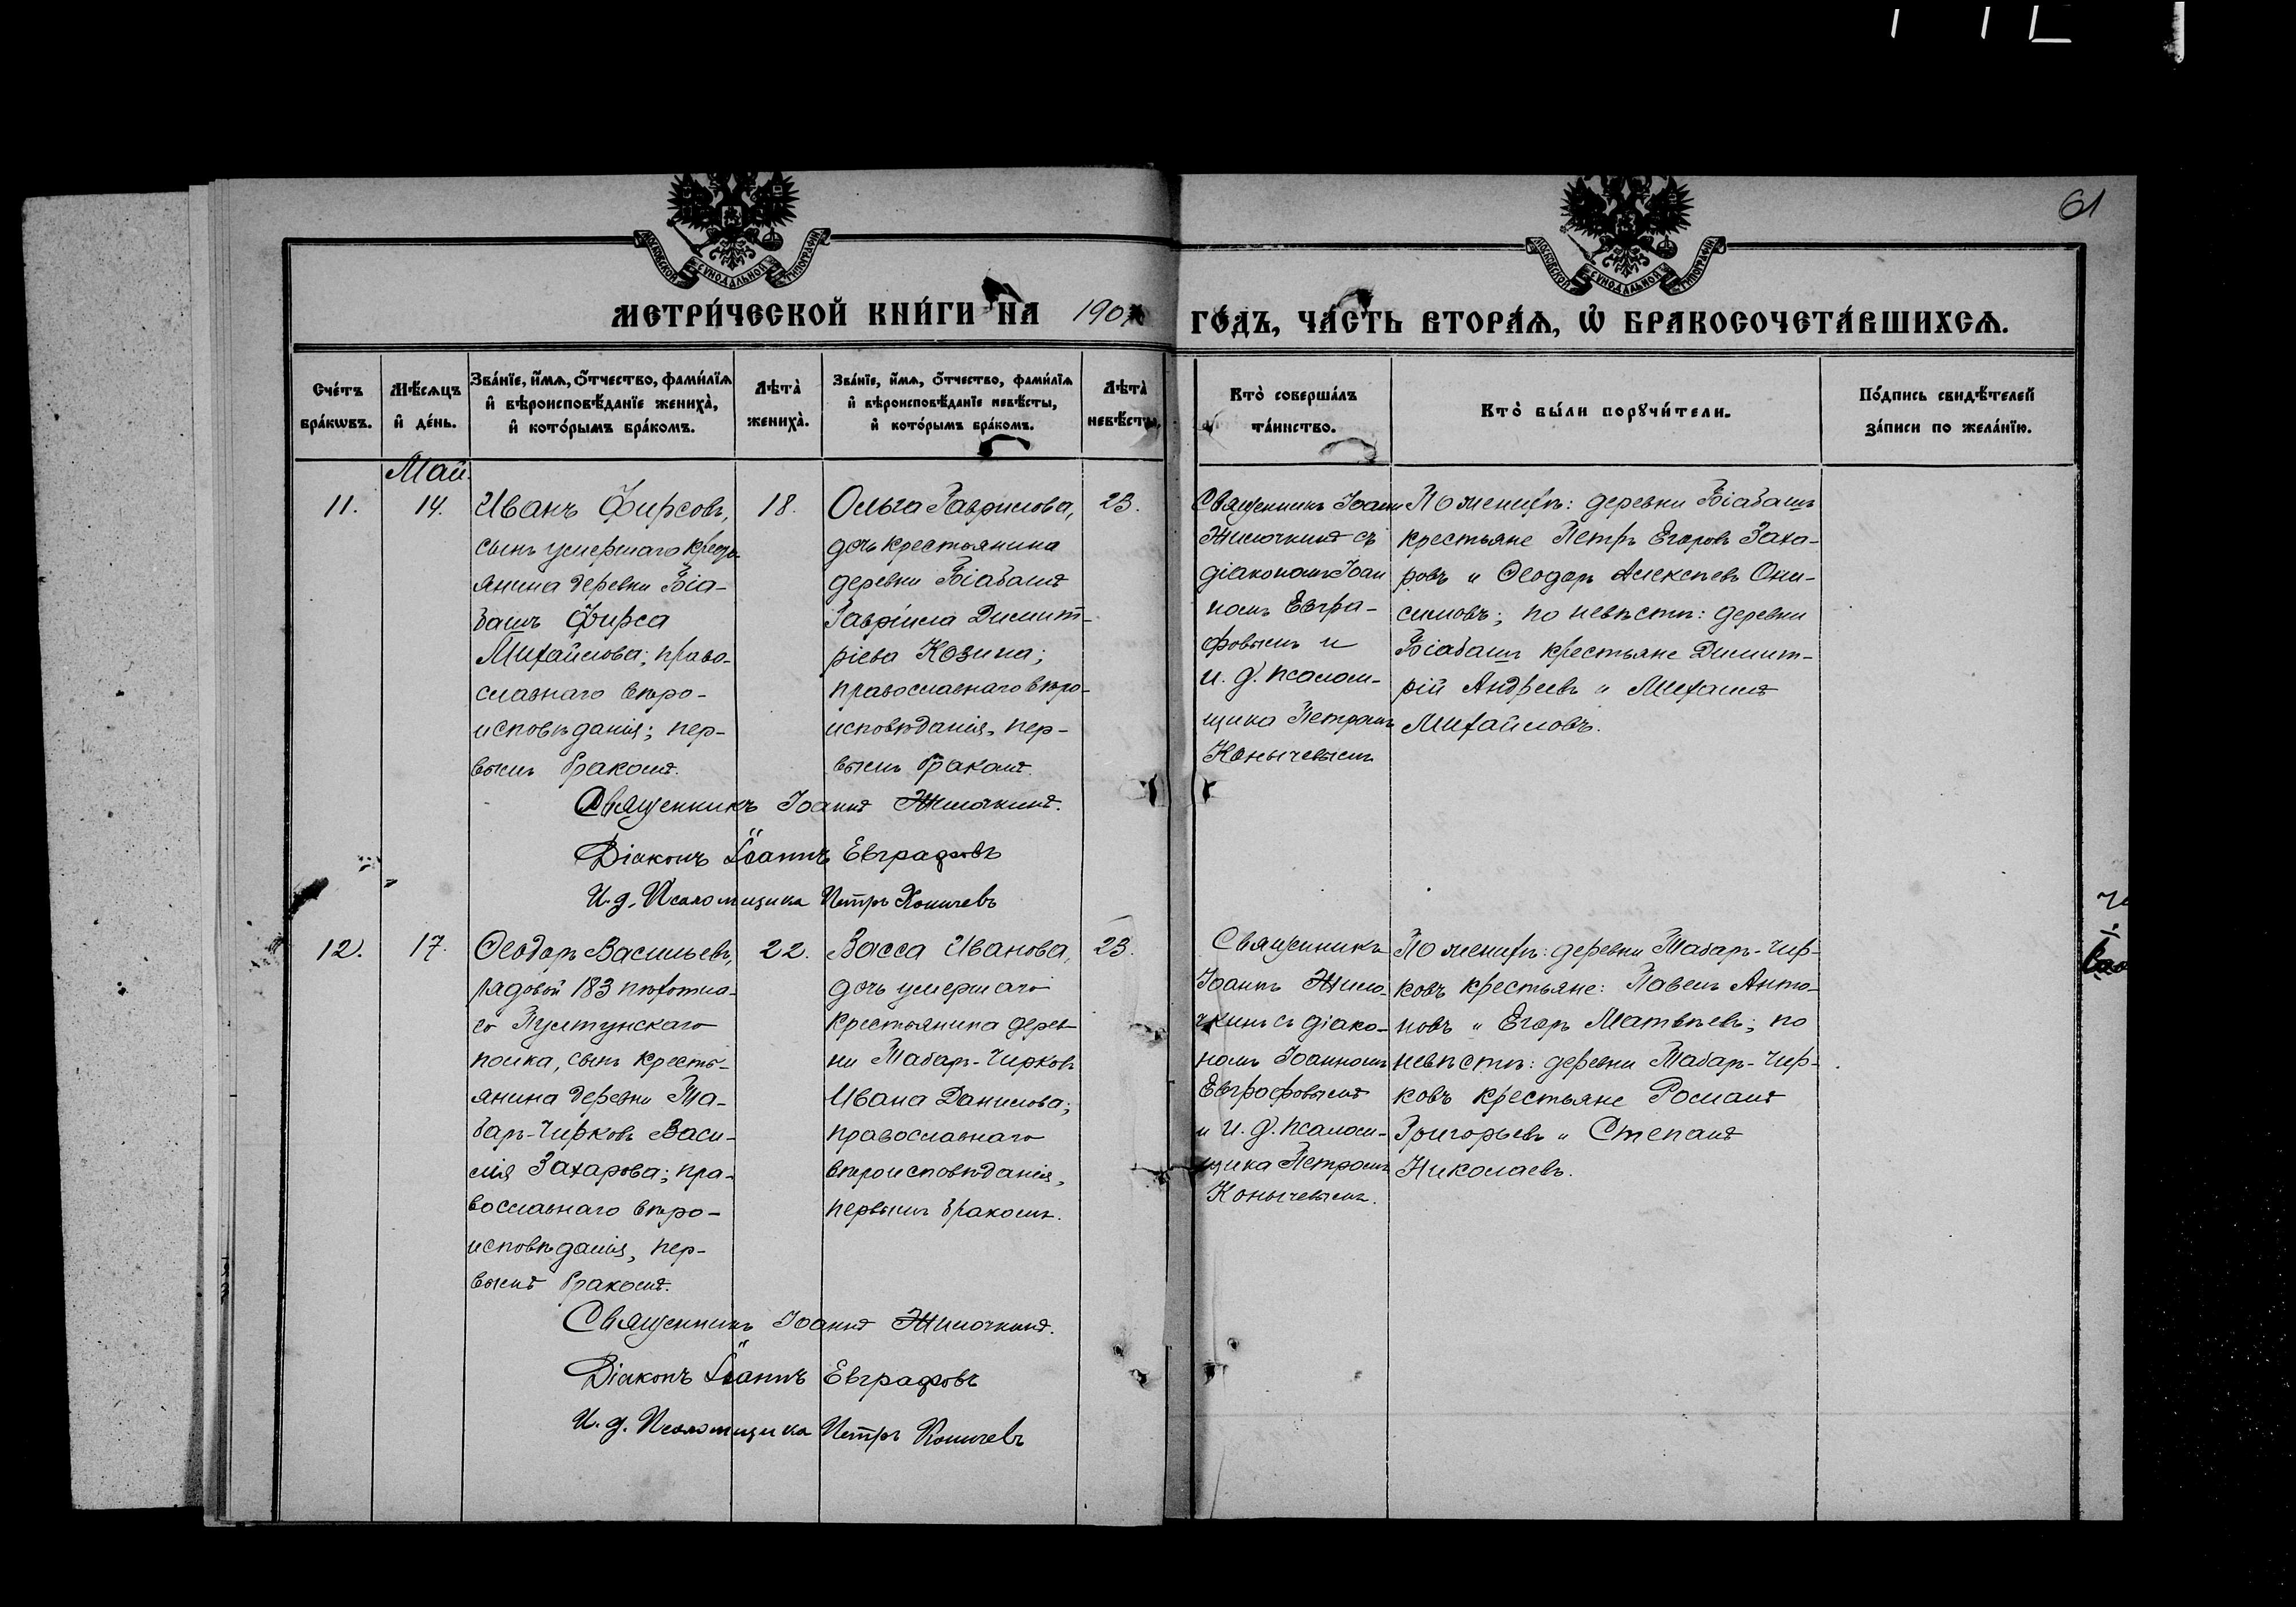 61
МОСКОВСКОЙ СУНОДАЛЬНОЙ ТИПОГРАФІИ
МОСКОВСКОЙ СУНОДАЛЬНОЙ ТИПОГРАФІИ
МЕТРИ́ЧЕСКОЙ КНИ́ГИ НА 190
ГО́ДЪ, ЧА́СТЬ ВТОРА́Ѧ, Ѡ҆ БРАКОСОЧЕТА́ВШИХСѦ.
Сче́тъ
бра́кѡвъ.
Мѣ́сѧцъ
и҆ де́нь.
Зва́нїе, и҆́мѧ, ѻ҆́тчество, фами́лїѧ
и҆ вѣроисповѣ́данїе жениха̀,
и҆ кото́рымъ бра́комъ.
Лѣта̀
жениха̀.
Зва́нїе, и҆́мѧ, ѻ҆́тчество, фами́лїѧ
и҆ вѣроисповѣ́данїе невѣ́сты,
и҆ кото́рымъ бра́комъ.
Лѣта̀
невѣ́сты.
Кто̀ соверша́лъ
та́инство.
Кто̀ бы́ли порꙋчи́тели.
По́дпись свидѣ́телей
за́писи по жела́нїю.
Май.
11.
14.
Иванъ Фирсовъ,
сынъ умершаго кресть-
янина деревни Біа-
башъ Фирса
Михайлова; право-
славнаго вѣро-
исповѣданія; пер-
вымъ бракомъ.
18.
Ольга Гаврилова,
дочь крестьянина
деревни Біабашъ
Гавріила Димит-
ріева Козина;
православнаго вѣро-
исповѣданія, пер-
вымъ бракомъ.
23.
Священникъ Іоаннъ
Жилочкинъ съ
діакономъ Іоан
номъ Евгра-
фовымъ и
и. д. псалом-
щика Петромъ
Конычевымъ
По женихѣ: деревни Біабашъ
крестьяне Петръ Егоровъ Заха-
ровъ и Ѳеодоръ Алексѣевъ Они-
симовъ; по невѣстѣ: деревни
Біабашъ крестьяне Димит-
рій Андреевъ и Михаилъ
Михайловъ.
Священникъ Іоаннъ Жилочкинъ.
Діаконъ Іоаннъ Евграфовъ
И. д. Псаломщика Петръ Конычевъ
12.
17.
Ѳеодоръ Васильевъ,
рядовой 183 пѣхотна-
го Пултунскаго
полка, сынъ кресть-
янина деревни Та-
баръ-Чирковъ Васи-
лія Захарова; пра-
вославнаго вѣро-
исповѣданія, пер-
вымъ бракомъ.
22.
Васса Иванова,
дочь умершаго
крестьянина дерев-
ни Табаръ-Чирковъ
Ивана Данилова;
православнаго
вѣроисповѣданія,
первымъ бракомъ.
23.
Священникъ
Іоаннъ Жило-
чкинъ съ діако-
номъ Іоанномъ
Евграфовымъ
и И. д. псалом-
щика Петромъ
Конычевымъ.
По женихѣ: деревни Табаръ-Чир-
ковъ крестьяне: Павелъ Анто-
новъ и Егоръ Матвѣевъ; по
невѣстѣ: деревни Табаръ-Чир-
ковъ крестьяне Романъ
Григорьевъ и Степанъ
Николаевъ.
Священникъ Іоаннъ Жилочкинъ.
Діаконъ Іоаннъ Евграфовъ
И. д. Псаломщика Петръ Конычевъ